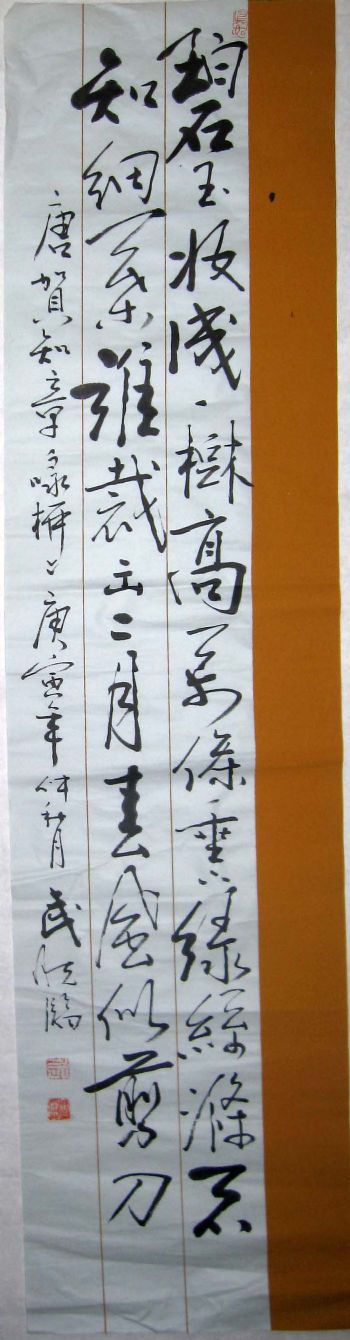 碧玉妆成一樹高万條垂下綠絲滌不
知細葉誰裁出二月春風似剪刀
唐賀知章咏柳庚寅年仲秋月武